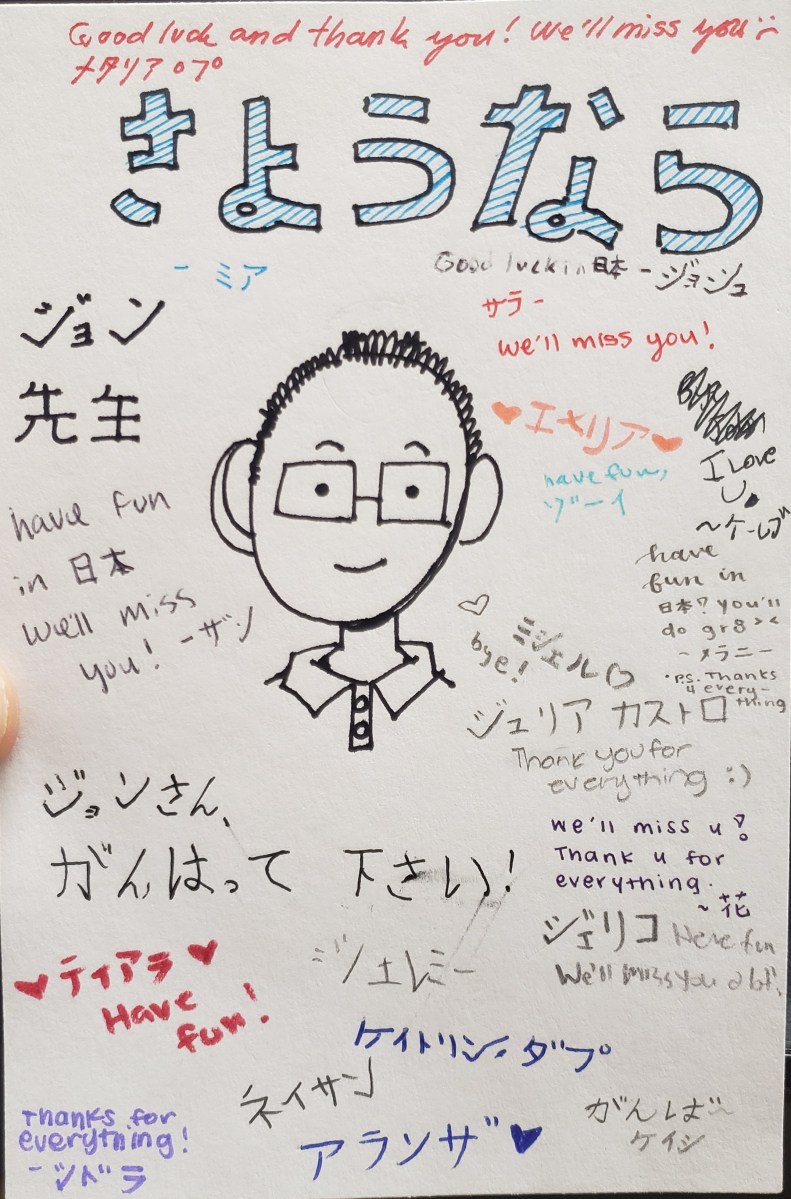 Good luck and thank you! We'll miss you :(
メタリア ロプ
さようなら
- ミア
Good luck in 日本 - ジョシュ
サラ -
we'll miss you!
ジョン
先生
♥エメリア♥
have fun,
ゾーイ
I Love
U
~ケーレブ
have fun
in 日本
We'll miss
you! -ザン
have
fun in
日本? you'll
do gr8 ><
~メラニー
・P.S. Thanks
4 every-
thing
♡
bye!
ミシェル♡
ジュリア カストロ
Thank you for
everything :)
ジョンさん、
がんはって 下さい!
We'll miss u!
Thank u for
everything.
~花
ジェリコ Have fun
We'll miss you a lot!
ジェレミー
♥ティアラ♥
Have
fun!
ケイトリン・ダプ
ネイサン
アランザ♥
Thanks for
everything!
-シドラ
がんば~
ケイシ